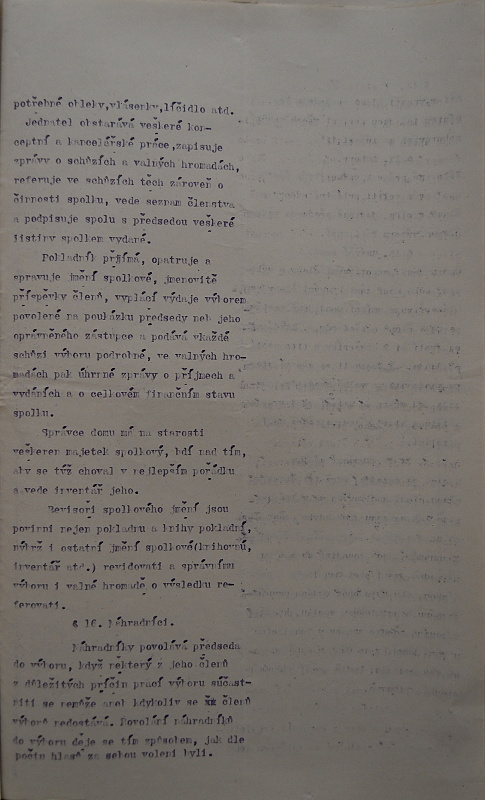 potřebné obleky,vlásenky,líčidlo atd.
Jednatel obstarává veškeré kon-
ceptní a kancelářské práce,zapisuje
zprávy o schůzích a valných hromadách,
referuje ve schůzích těch zároveň o
činnosti spolku, vede seznam členstva
a podpisuje spolu s předsedou veškeré
listiny spolkem vydané.
Pokladník přijímá, opatruje a
spravuje jmění spolkové, jmenovitě
příspěvky členů, vyplácí výdaje výborem
povolené na poukázku předsedy neb jeho
oprávněného zástupce a podává vkaždé
schůzi výboru podrobné, ve valných hro-
madách pak úhrnné zprávy o příjmech a
vydáních a o celkovém finančním stavu
spolku.
Správce domu má na starosti
veškeren majetek spolkový, bdí nad tím,
aby se týž choval v nejlepším pořádku
a vede inventář jeho.
Revisoři spolkového jmění jsou
povinni nejen pokladnu a knihy pokladní,
nýbrž i ostatní jmění spolkové(knihovnu,
inventář atd.) revidovati a správnímu
výboru i valné hromadě o výsledku re-
ferovati.
§ 16. Náhradníci.
Náhradníky povolává předseda
do výboru, když některý z jeho členů
z důležitých příčin prací výboru súčast-
niti se nemůže aneb kdykoliv se členů
výboru nedostává. Povolání náhradníků
do výboru děje se tím způsobem, jak dle
počtu hlasů za sebou voleni byli.